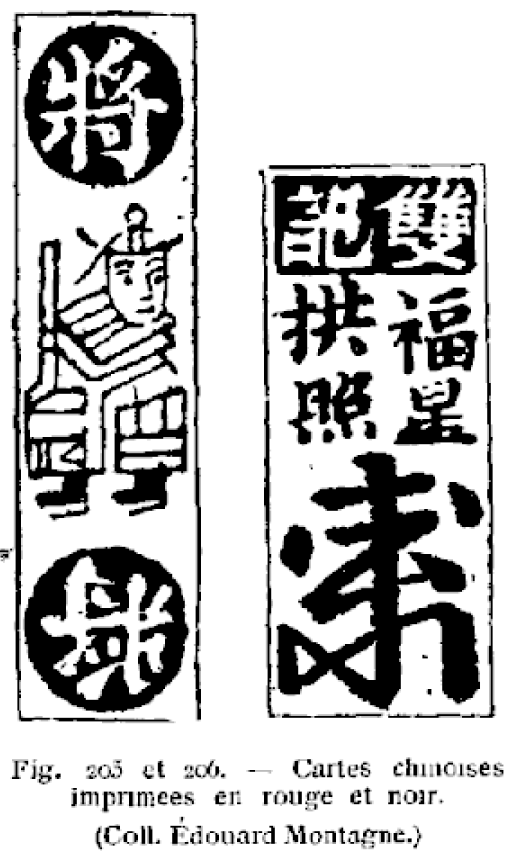 將
將
雙記
福星
拱照
Fig. 205 et 206. — Cartes chinoises
imprimées en rouge et noir.
(Coll. Édouard Montagne.)